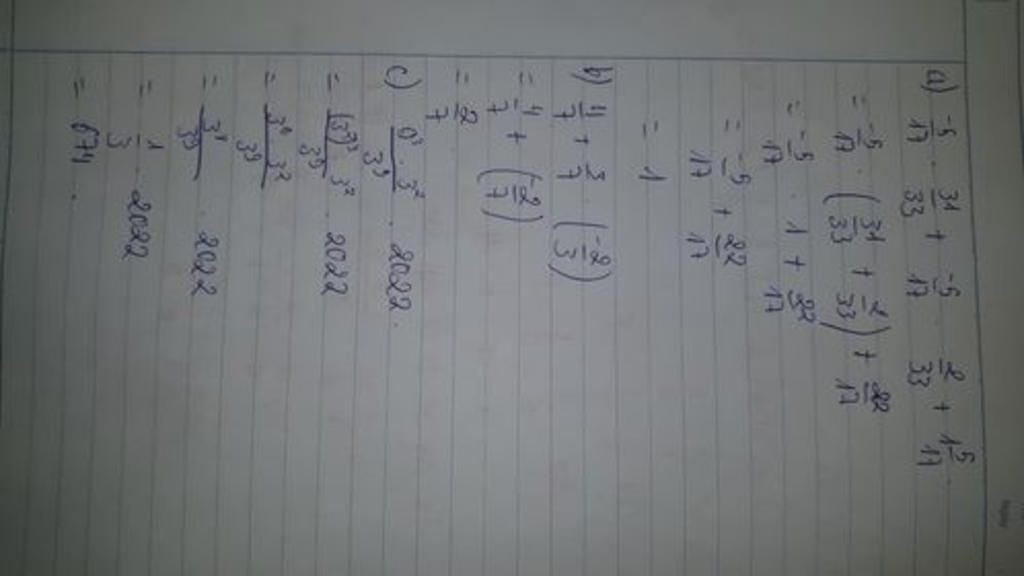 a) -5/17 . 31/33 + -5/17 . 2/33 + 1 5/17
= -5/17 . (31/33 + 2/33) + 22/17
= -5/17 . 1 + 22/17
= -5/17 + 22/17
= 1
b) 4/7 + 3/7 . (-2/3)
= 4/7 + (-2/7)
= 2/7
c) 9³ . 3² / 3⁹ . 2022.
= (3²)³ . 3² / 3⁹ . 2022
= 3⁶ . 3² / 3⁹
= 3⁸ / 3⁹ . 2022
= 1/3 . 2022
= 674.